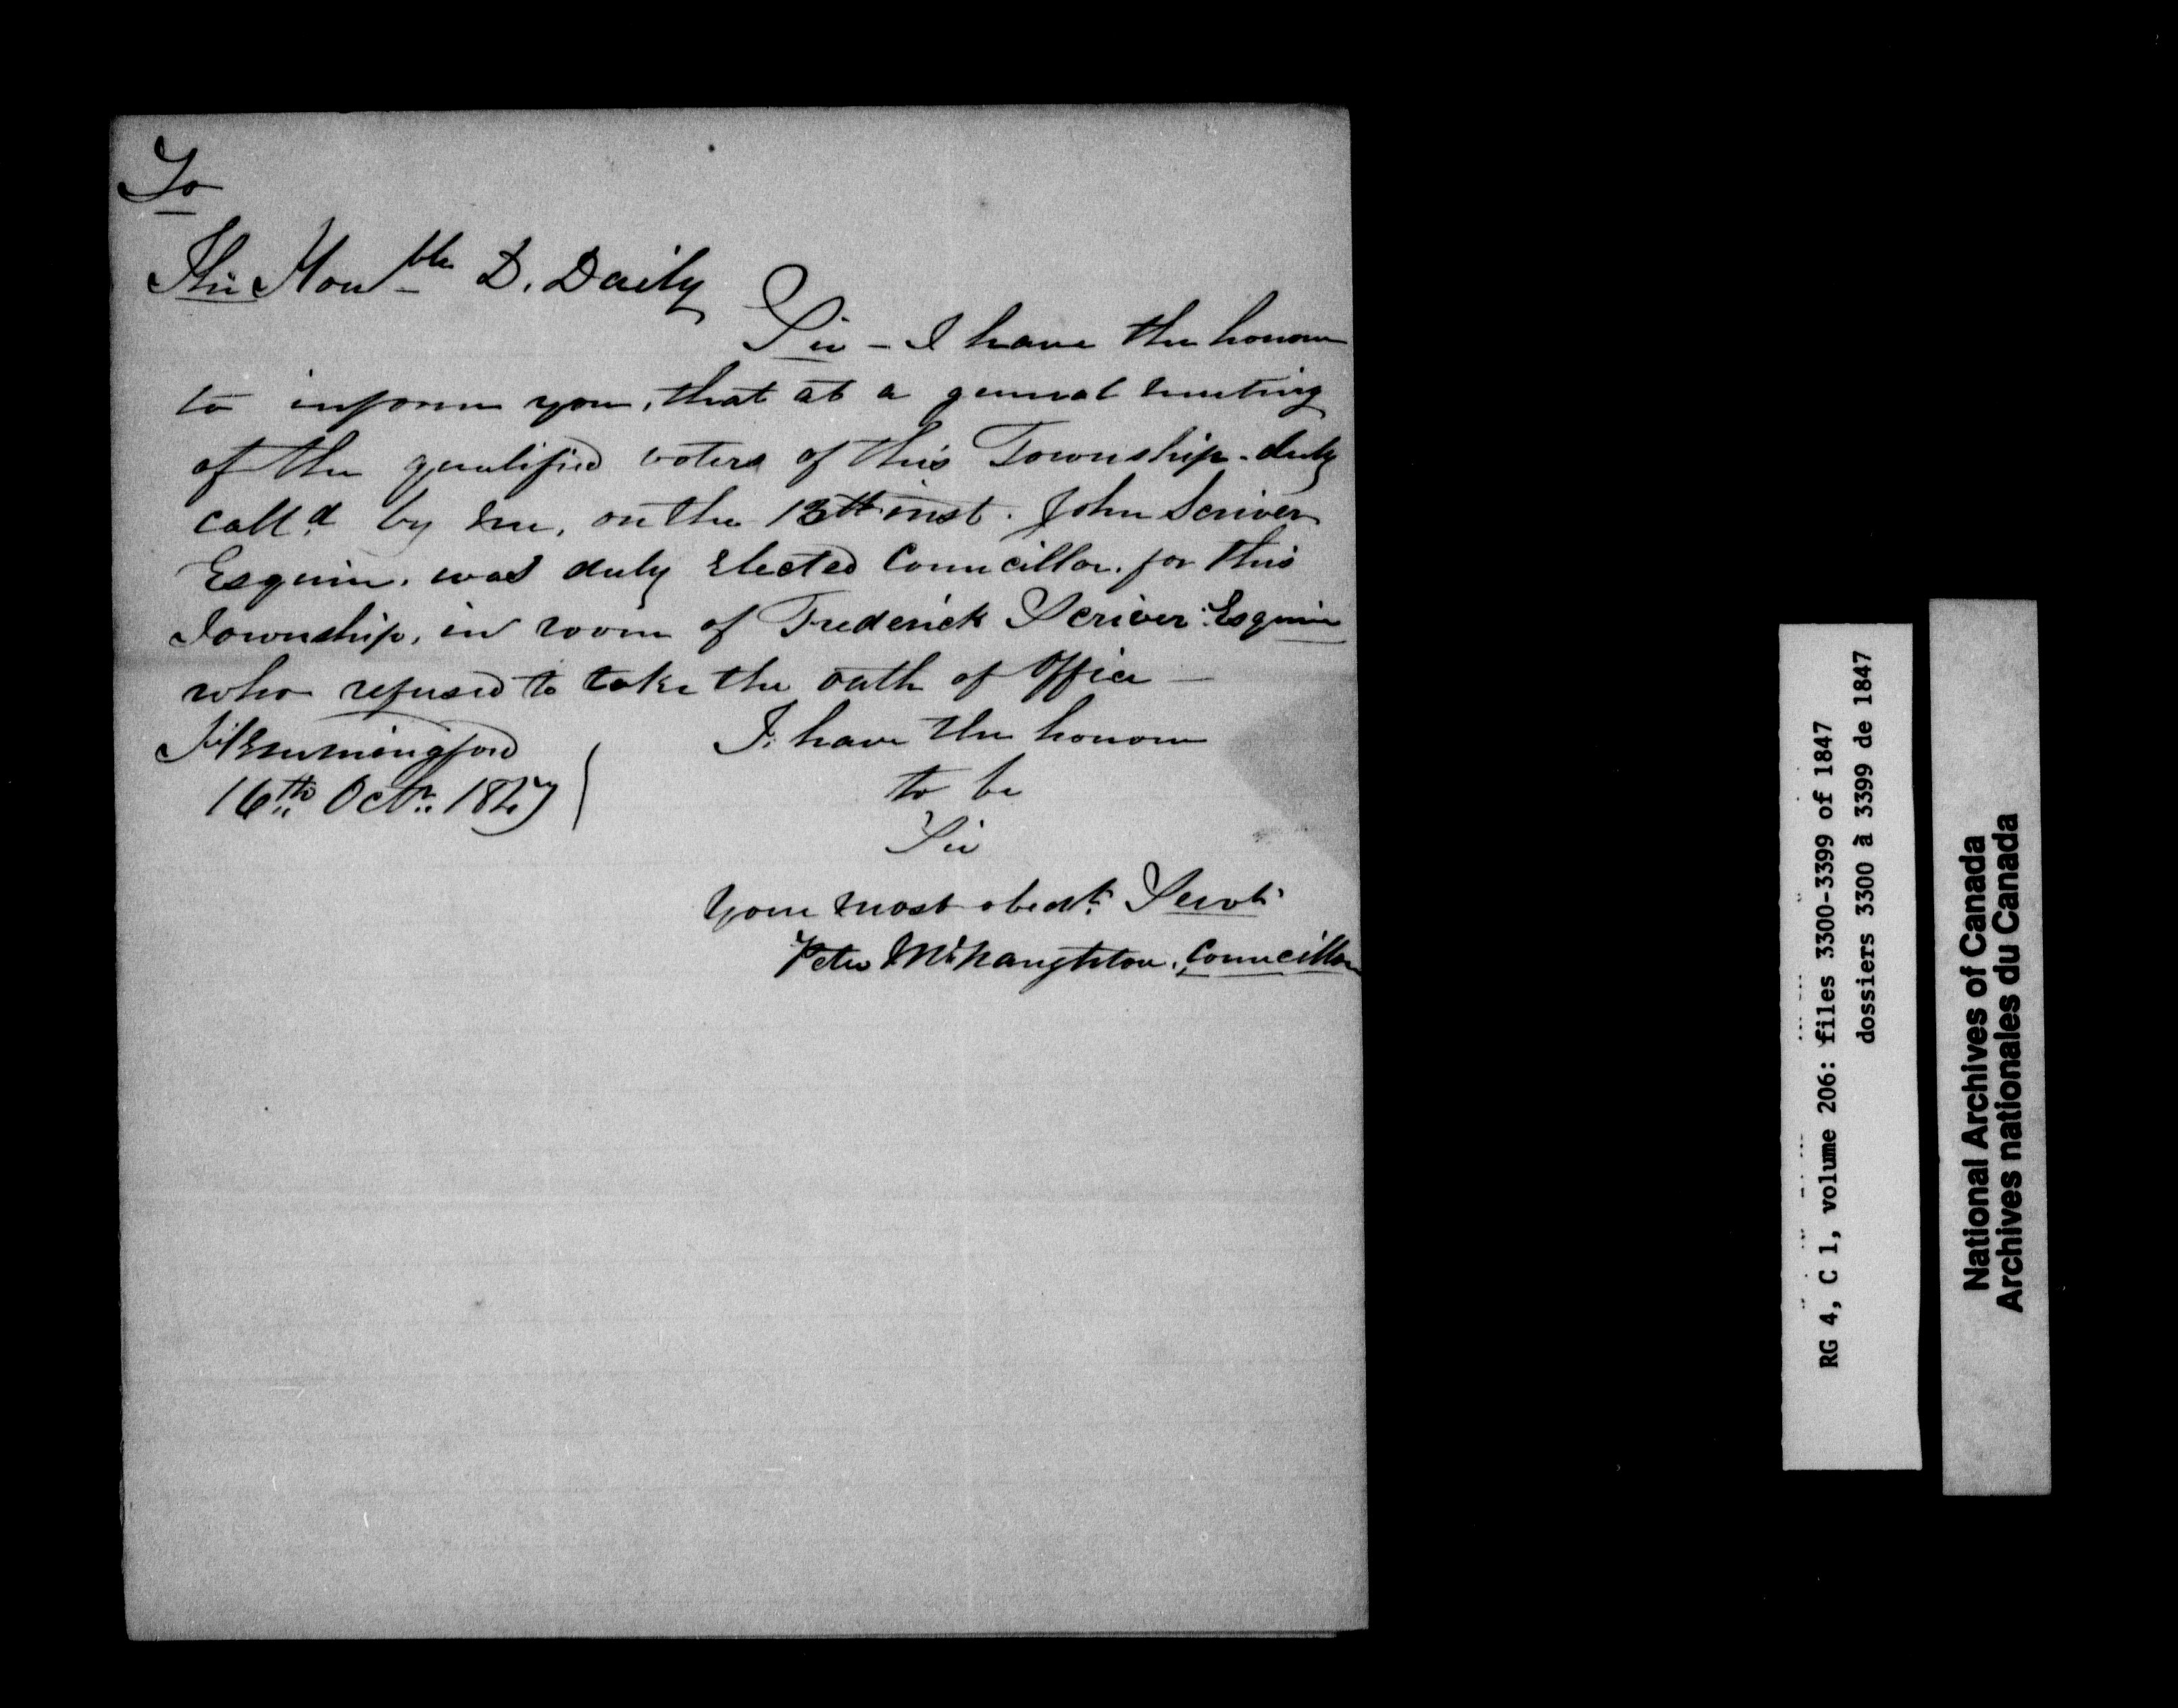 To
The Honble D. Daily
Sir - I have the honour
to inform you, that at a general meeting
of the qualified voters of this Township - duly
call'd by me, on the 13th inst. John Scriver
Esquire, was duly Elected Councillor, for this
Township, in room of Frederick Scriver Esquire
who refused to take the oath of Office -
Hemmingford
16th Octr. 1847
I have the honour
to be
Sir
Your most obedt. Servt.
Peter McNaughton, Councillor
RG 4, C 1, volume 206: files 3300-3399 of 1847
dossiers 3300 à 3399 de 1847
National Archives of Canada
Archives nationales du Canada